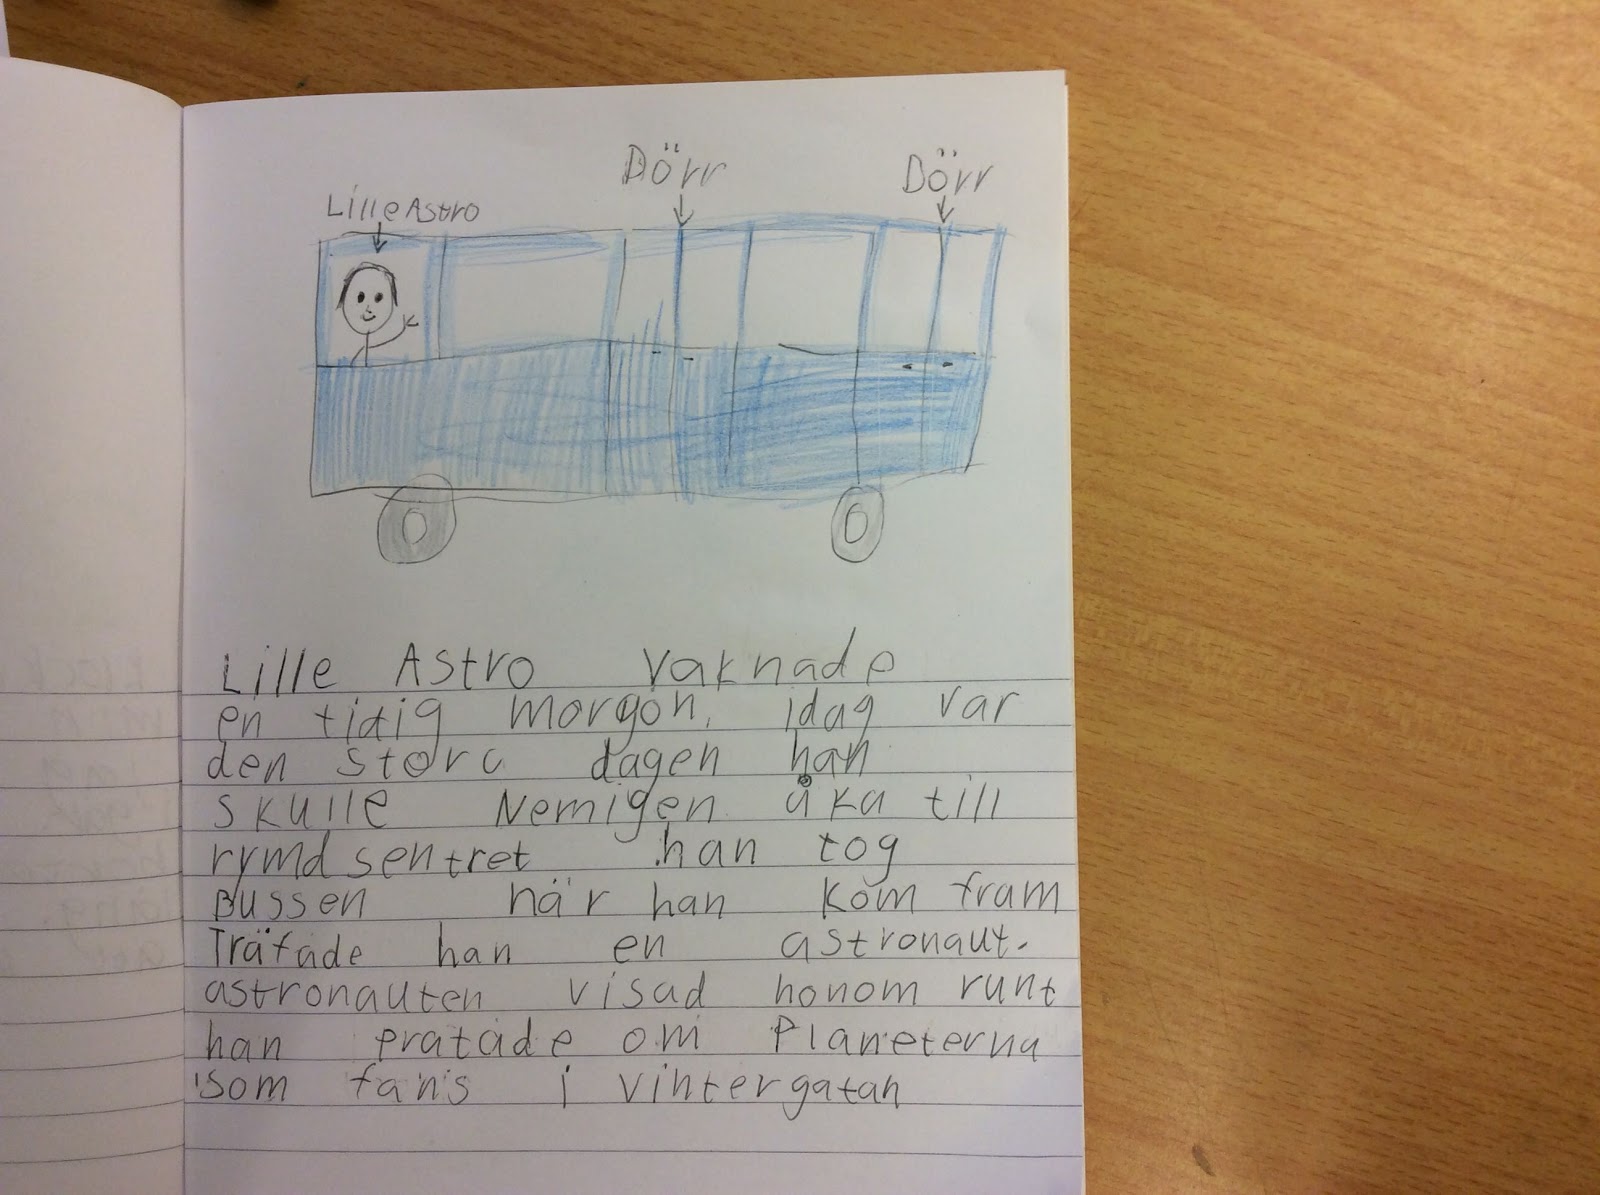 Dörr
Dörr
Lille Astro
Lille Astro vaknade
en tidig morgon. idag var
den stora dagen han
skulle Nemigen åka till
rymdsentret han tog
Bussen när han kom fram
Träfade han en astronaut.
astronauten visad honom runt
han pratade om Planeterna
som fans i vintergatan